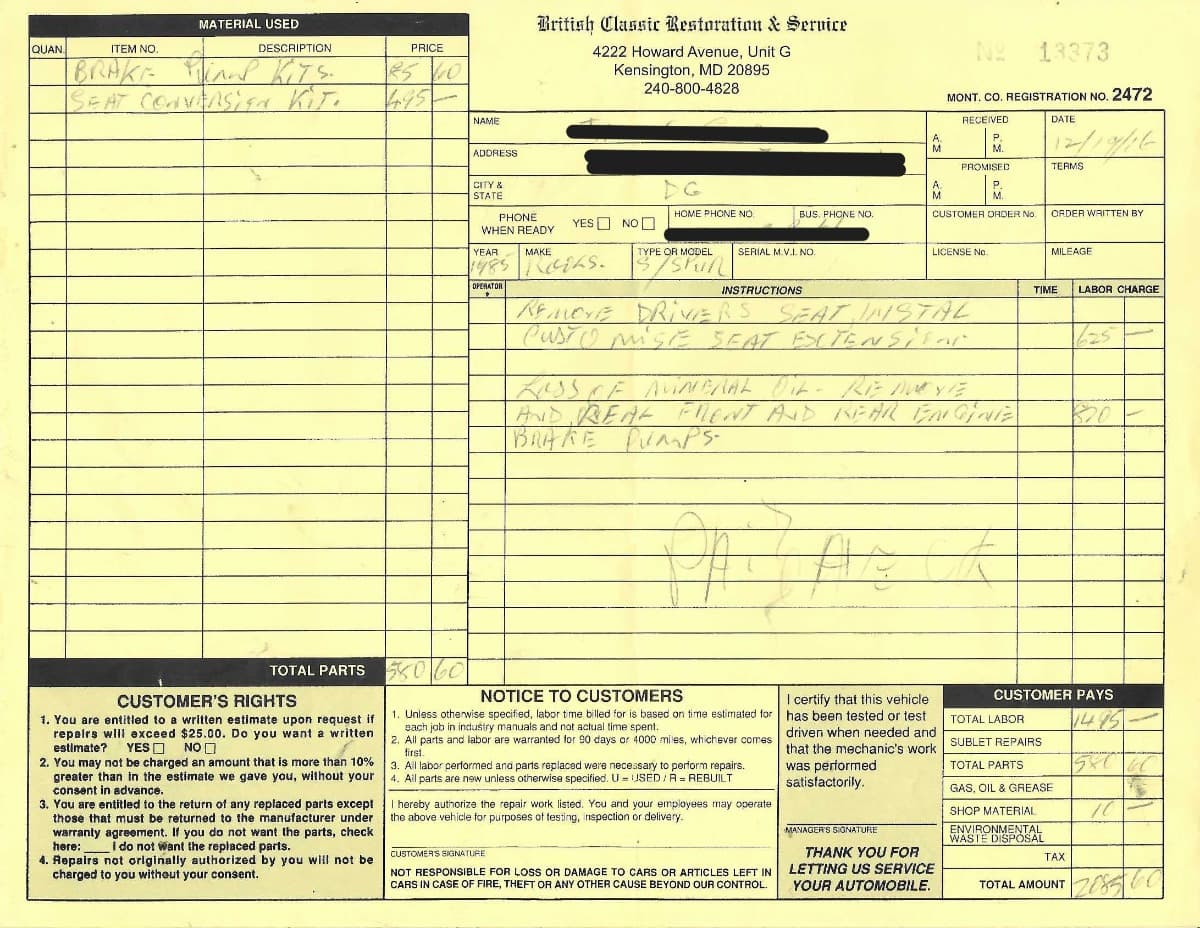 MATERIAL USED
QUAN. ITEM NO. DESCRIPTION PRICE
BRAKE PUMP KITS. 85 60
SEAT CONVERSION KIT. 495 —
TOTAL PARTS 580 60
British Classic Restoration & Service
4222 Howard Avenue, Unit G
Kensington, MD 20895
240-800-4828
No 13373
MONT. CO. REGISTRATION NO. 2472
NAME
ADDRESS
CITY & STATE DG
PHONE WHEN READY YES NO
HOME PHONE NO. BUS. PHONE NO.
RECEIVED A.M P.M.
DATE 12/19/16
PROMISED A.M P.M.
TERMS
CUSTOMER ORDER No. ORDER WRITTEN BY
YEAR 1985 MAKE ROLLS. TYPE OR MODEL S/SPUR SERIAL M.V.I. NO. LICENSE No. MILEAGE
OPERATOR INSTRUCTIONS TIME LABOR CHARGE
REMOVE DRIVERS SEAT, INSTAL
CUSTOMISE SEAT EXTENSION 625 —
LOSS OF MINERAL OIL - REMOVE
AND RESEAL FRONT AND REAR ENGINE 870 —
BRAKE PUMPS-
PAID
CUSTOMER'S RIGHTS
1. You are entitled to a written estimate upon request if
repairs will exceed $25.00. Do you want a written
estimate? YES NO
2. You may not be charged an amount that is more than 10%
greater than in the estimate we gave you, without your
consent in advance.
3. You are entitled to the return of any replaced parts except
those that must be returned to the manufacturer under
warranty agreement. If you do not want the parts, check
here: ____ I do not want the replaced parts.
4. Repairs not originally authorized by you will not be
charged to you without your consent.
NOTICE TO CUSTOMERS
1. Unless otherwise specified, labor time billed for is based on time estimated for
each job in industry manuals and not actual time spent.
2. All parts and labor are warranted for 90 days or 4000 miles, whichever comes
first.
3. All labor performed and parts replaced were necessary to perform repairs.
4. All parts are new unless otherwise specified. U = USED / R = REBUILT
I hereby authorize the repair work listed. You and your employees may operate
the above vehicle for purposes of testing, inspection or delivery.
CUSTOMER'S SIGNATURE
NOT RESPONSIBLE FOR LOSS OR DAMAGE TO CARS OR ARTICLES LEFT IN
CARS IN CASE OF FIRE, THEFT OR ANY OTHER CAUSE BEYOND OUR CONTROL.
I certify that this vehicle
has been tested or test
driven when needed and
that the mechanic's work
was performed
satisfactorily.
MANAGER'S SIGNATURE
THANK YOU FOR
LETTING US SERVICE
YOUR AUTOMOBILE.
CUSTOMER PAYS
TOTAL LABOR 1495 —
SUBLET REPAIRS
TOTAL PARTS 580 60
GAS, OIL & GREASE
SHOP MATERIAL 10 —
ENVIRONMENTAL
WASTE DISPOSAL
TAX
TOTAL AMOUNT 2085 60